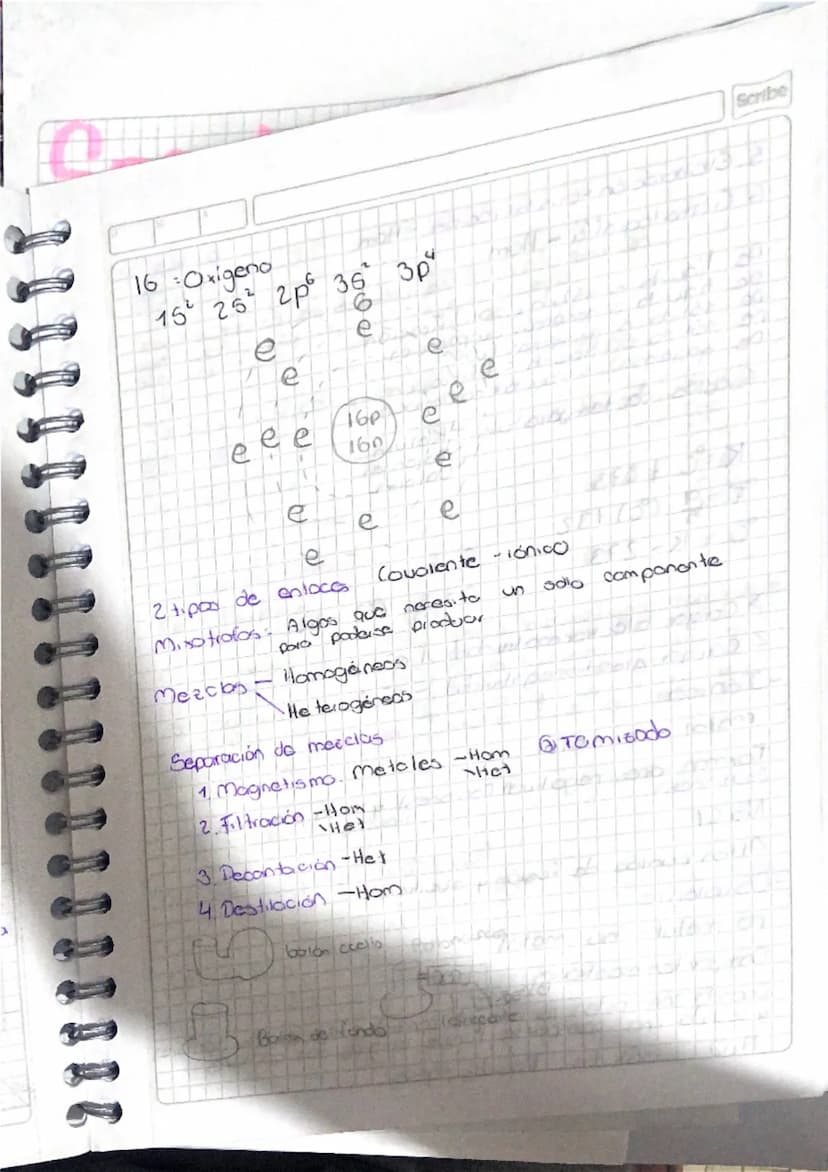 Scribe
16 = Oxigeno
1s² 2s² 2p⁶ 3s² 3p⁴
6
e
e e
e e
e e
16p e
e e e 16n
e
e e e
e
2 tipos de enlaces Covalente - iónico
Mixotrofos: Algos que necesita un solo componente
para poderse producir
Mezclas - Homogéneas
Heterogéneas
Separación de mezclas
1. Magnetismo. Metales - Hom ⑤ Tamizado
- Het
2. Filtración - Hom
\ Het
3. Decantación - Het
4. Destilación - Hom
balón
Balon de fondo